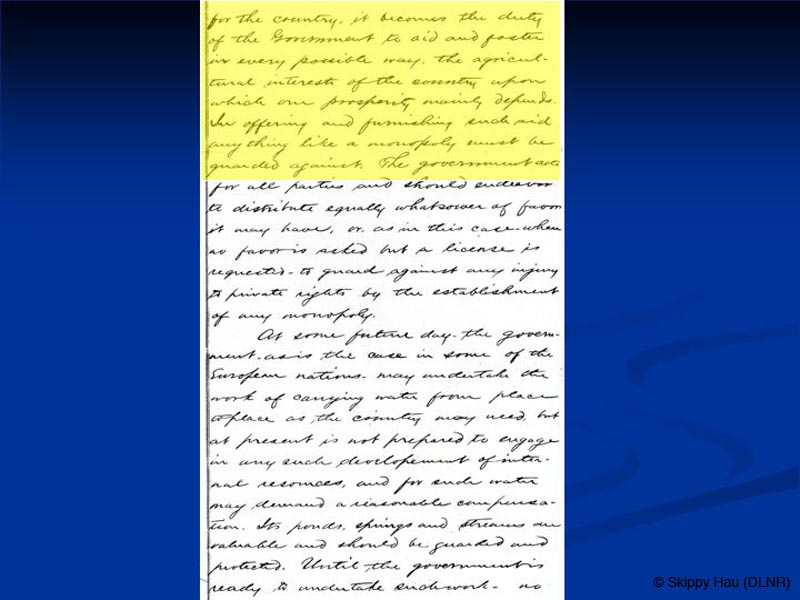 for the country, it becomes the duty
of the Government to aid and foster
in every possible way, the agricul-
tural interests of the country upon
which our prosperity mainly depends.
In offering and furnishing such aid
anything like a monopoly must be
guarded against. The government acts
for all parties and should endeavor
to distribute equally whatsoever of favor
it may have, or, as in this case - when
no favor is asked but a license is
requested - to guard against any injury
to private rights by the establishment
of any monopoly.
At some future day - the govern-
ment - as is the case in some of the
European nations - may undertake the
work of carrying water from place
to place as the country may need, but
at present is not prepared to engage
in any such developement of inter-
nal resources, and for such water
may demand a reasonable compensa-
tion. Its ponds, springs and streams are
valuable and should be guarded and
protected. Until the government is
ready to undertake such work - no
© Skippy Hau (DLNR)